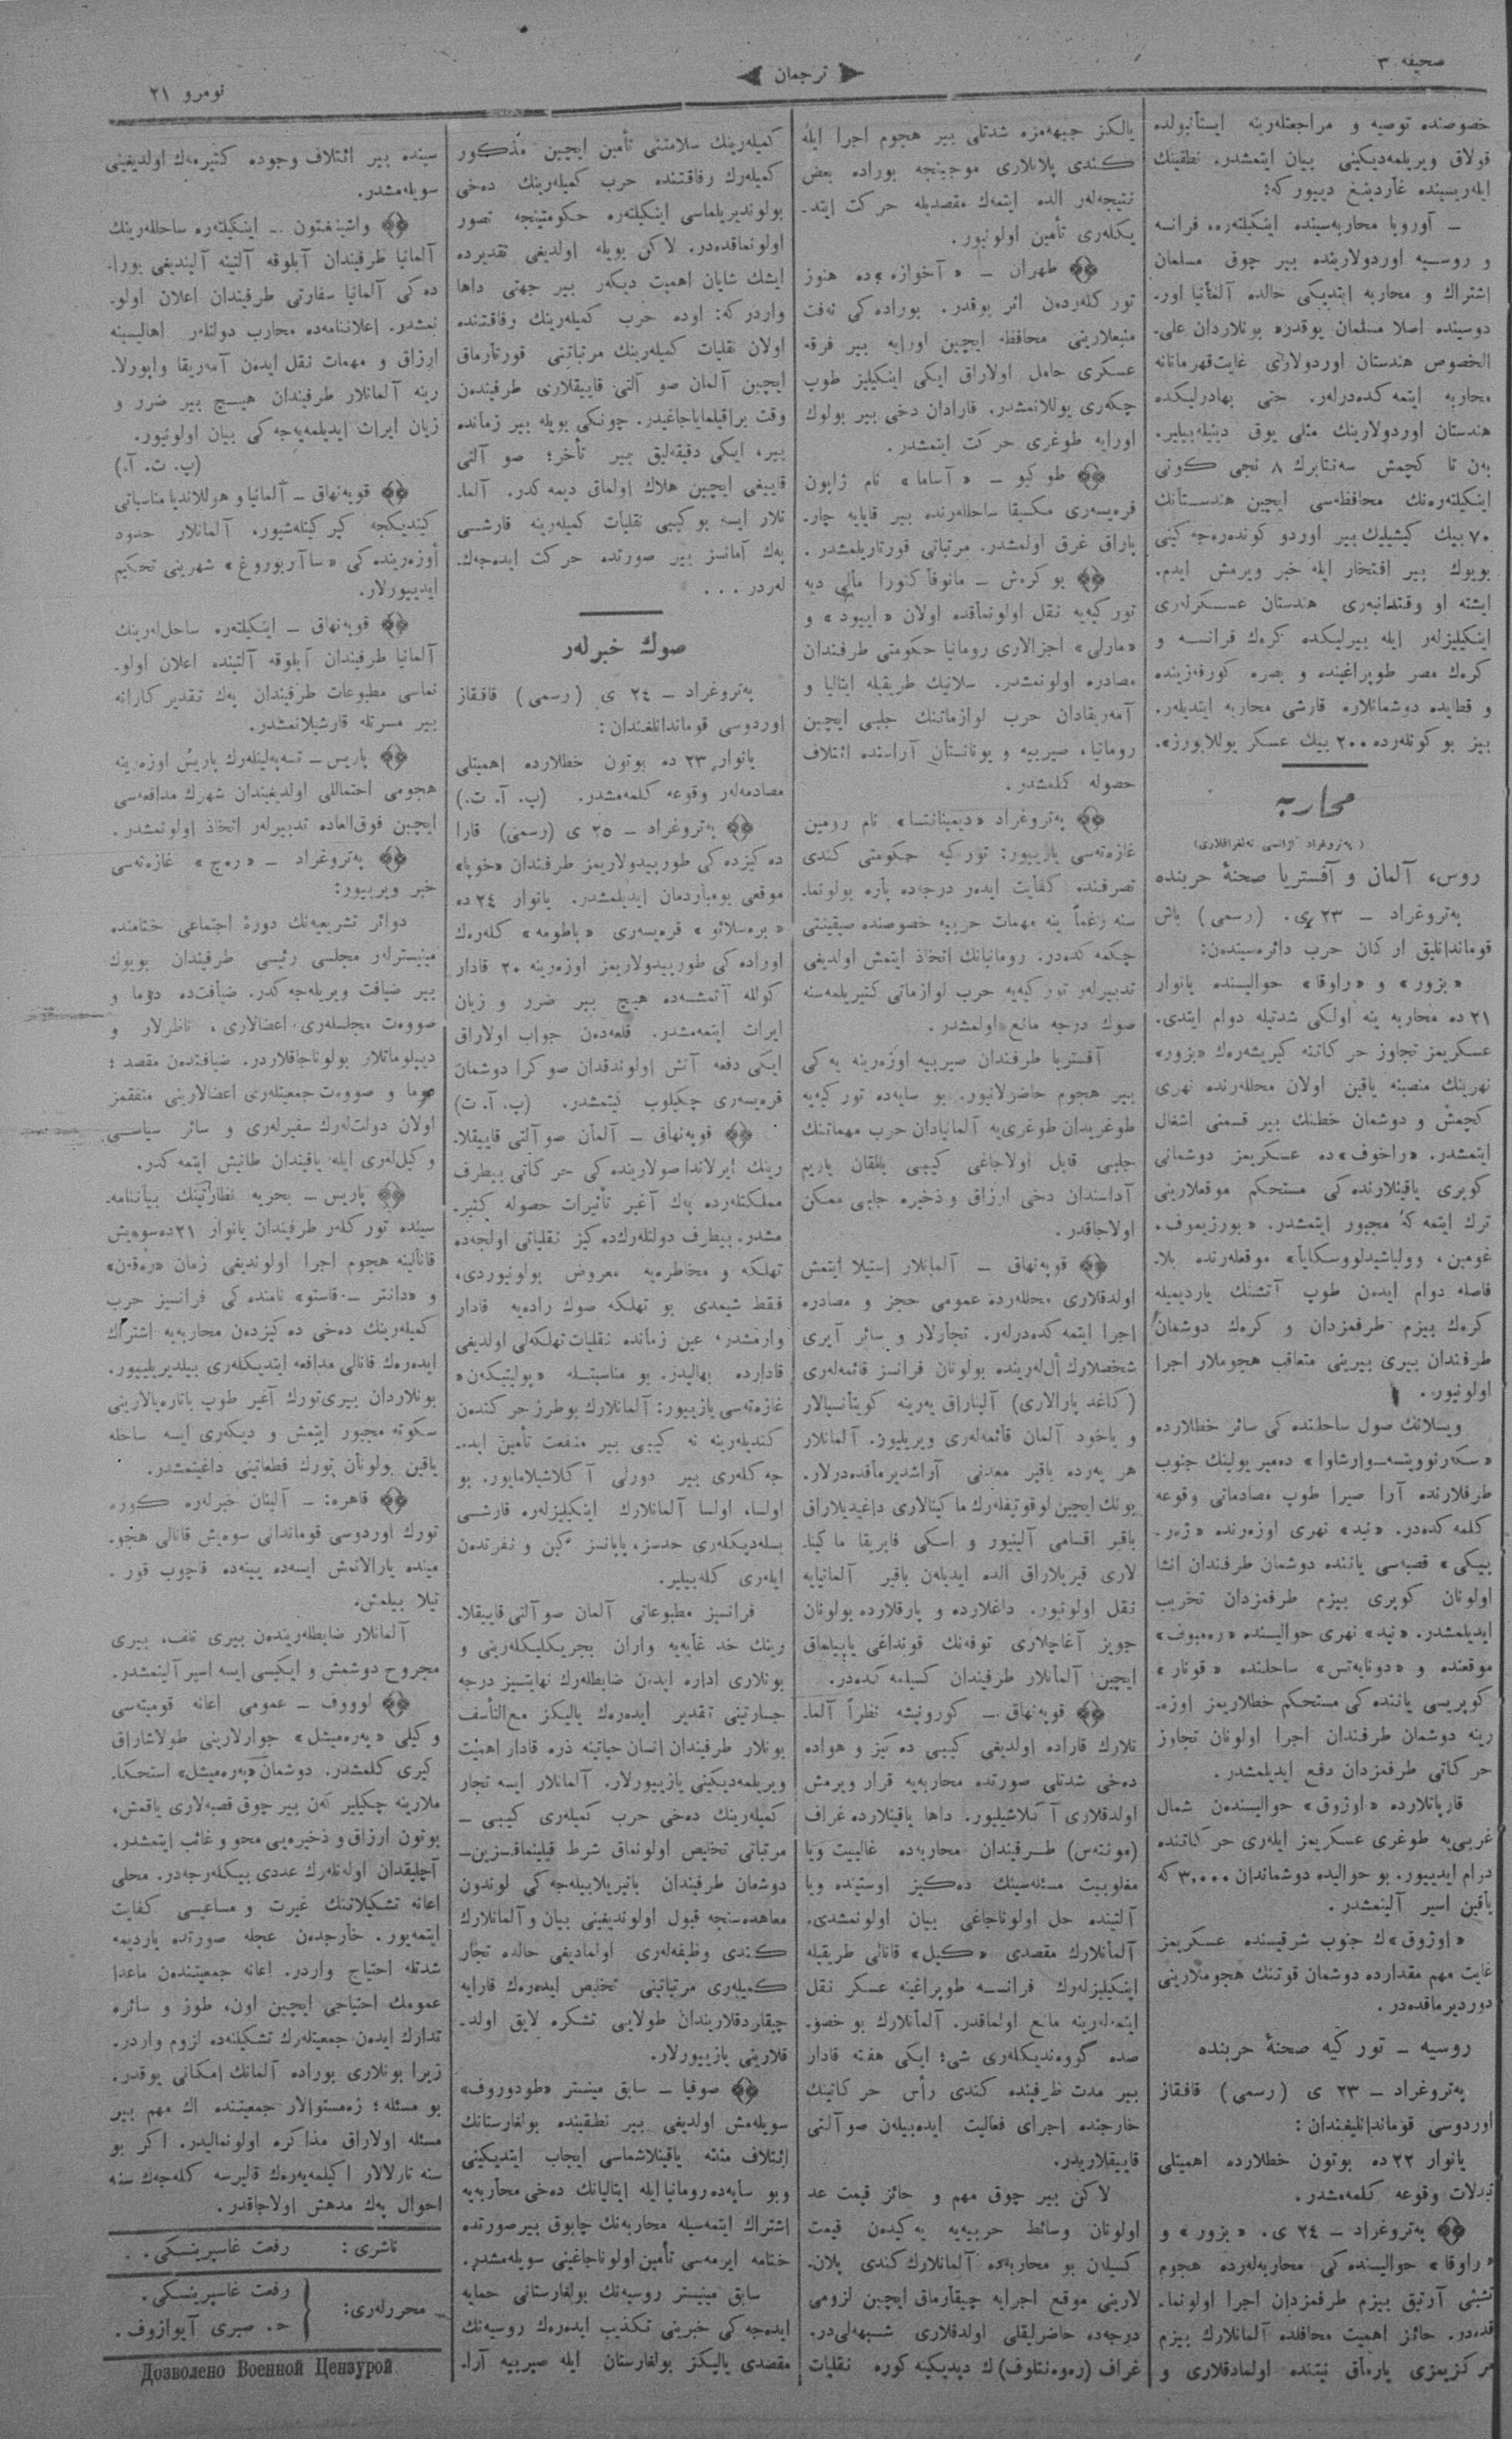 صحیفه ۳
ترجمان
نومرو ۲۱
خصوصنده توصیه و مراجعتلەرینه ایستانبولده
قولاق ویریلمەدیکینی بیان ایتمشدر. نطقینك
ایلەریسینده غاردینغ دییور که:
ـ آوروپا محاربەسینده اینکیلتەره، فرانسه
و روسیه اوردولارینده بیر چوق مسلمان
اشتراك و محاربه ایتدیکی حالده آلمانیا اور-
دوسینده اصلا مسلمان یوقدر، بونلاردان علی-
الخصوص هندستان اوردولاری غایت قهرمانانه
محاربه ایتمەکدەدرلەر. حتی بهادرلیکده
هندستان اوردولارینك مثلی یوق دینیلەبیلیر.
بەن تا کچمش سەنتابرك ۸ نجی کونی
اینکیلتەرەنك محافظەسی ایچین هندستانك
۷۰ بیك کیشیلیك بیر اوردو کوندەرەجەکینی
بویوك بیر افتخار ایله خبر ویرمش ایدم.
ایشته او وقتدانبەری هندستان عسکرلەری
اینکیلیزلەر ایله بیرلیکده کرەك فرانسه و
کرەك مصر طوپراغینده و بصره کورفەزینده
و قطایده دوشمانلاره قارشی محاربه ایتدیلەر.
بیز بو کونلەرده ۲۰۰ بیك عسکر یوللایورز».
محاربه
(پەتروغراد آژانسی تەلغرافلاری)
روس، آلمان و آفستریا صحنۀ حربنده
پەتروغراد ـ ۲۳ ی. (رسمی) باش
قوماندانلیق ارکان حرب دائرەسیندەن:
«بزور» و «راوقا» حوالیسنده یانوار
۲۱ ده محاربه ینه اولکی شدتیله دوام ایتدی.
عسکریمز تجاوز حرکاتنه کیریشەرەك «بزور»
نهرینك منصبنه یاقین اولان محللەرنده نهری
کچمش و دوشمان خطنك بیر قسمنی اشغال
ایتمشدر. «راخوف»ده عسکریمز دوشمانی
کوپری یاقینلارنده کی مستحکم موقعلارینی
ترك ایتمەکه مجبور ایتمشدر. «بورزیموف،
غومین، وولیاشیدلووسکایا» موقعلەرنده بلا-
فاصله دوام ایدەن طوپ آتشنك یاردیمیله
کرەك بیزم طرفمزدان و کرەك دوشمان
طرفندان بیری بیرینی متعاقب هجوملار اجرا
اولونیور.
ویسلانك صول ساحلنده کی سائر خطلارده
«سکەرنوویشه-وارشاوا» دەمیر یولینك جنوب
طرفلارنده آرا صیرا طوپ مصادماتی وقوعه
کلمەکدەدر. «نید» نهری اوزەرنده «ژەر-
نیکی» قصبەسی یاننده دوشمان طرفندان انشا
اولونان کوپری بیزم طرفمزدان تخریب
ایدیلمشدر. «نید» نهری حوالیسنده
موقعنده و «دونایەتس» ساحلنده
کوپریسی یاننده کی مستحکم خطلاریمز اوزە-
رینه دوشمان طرفندان اجرا اولونان تجاوز
حرکاتی طرفمزدان دفع ایدیلمشدر.
قارپاتلارده «اوژوق» حوالیسندەن شمال
غربی‌یه طوغری عسکریمز ایلەری حرکاتنده
دوام ایدییور. بو حوالیده دوشماندان ۳،۰۰۰ که
یاقین اسیر آلینمشدر.
«اوژوق»ك جنوب شرقیسنده عسکریمز
غایت مهم مقدارده دوشمان قوتنك هجوملارینی
دوردیرماقدەدر.
روسیه ـ تورکیه صحنۀ حربنده
پەتروغراد ـ ۲۳ ی (رسمی) قافقاز
اوردوسی قوماندانلیغندان:
یانوار ۲۲ ده بوتون خطلارده اهمیتلی
تبدلات وقوعه کلمەمشدر.
پەتروغراد ـ ۲۴ ی. «بزور» و
«راوقا» حوالیسنده کی محاربەلەرده هجوم
تشبثی آرتیق بیزم طرفمزدان اجرا اولونما-
قدەدر. حائز اهمیت محافلده آلمانلارك بیزم
مرکزیمزی یارماق نیتنده اولمادقلاری و
یالکز جبهەمزه شدتلی بیر هجوم اجرا ایله
کندی پلانلاری موجبنجه بوراده بعض
نتیجەلەر الده ایتمەك مقصدیله حرکت ایتد-
یکلەری تأمین اولونیور.
طهران ـ «آخوازه»ده هنوز
تورکلەردەن اثر یوقدر. بوراده کی نەفت
منبعلارینی محافظه ایچین اورایه بیر فرقه
عسکری حامل اولاراق ایکی اینکیلیز طوپ
چکەری یوللانمشدر. قارادان دخی بیر بولوك
اورایه طوغری حرکت ایتمشدر.
طوکیو ـ «آساما» نام ژاپون
قرەیسەری مکسیقا ساحللەرنده بیر قایایه چار-
پاراق غرق اولمشدر. مرتباتی قورتاریلمشدر.
بوکرەش ـ مانوفاکتورا مالی دیه
تورکیەیه نقل اولونماقده اولان «ایپود» و
«مارلی» اجزالاری رومانیا حکومتی طرفندان
مصادره اولونمشدر. سلانیك طریقیله ایتالیا و
آمەریقادان حرب لوازماتنك جلبی ایچین
رومانیا، صیربیه و یونانستان آراسنده ائتلاف
حصوله کلمشدر.
پەتروغراد «دیمینانتسا» نام رومین
غازەتەسی یازییور: تورکیه حکومتی کندی
تصرفنده کفایت ایدەر درجەده پاره بولونما-
سنه رغماً ینه مهمات حربیه خصوصنده صیقینتی
چکمەکدەدر. رومانیانك اتخاذ ایتمش اولدیغی
تدبیرلەر تورکیەیه حرب لوازماتی کتیریلمەسنه
صوك درجه مانع اولمشدر.
آفستریا طرفندان صیربیه اوزەرینه یەکی
بیر هجوم حاضرلانیور. بو سایەده تورکیەیه
طوغریدان طوغری‌یه آلمانیادان حرب مهماتنك
جلبی قابل اولاجاغی کیبی بالقان یاریم
آداسندان دخی ارزاق و ذخیره جلبی ممکن
اولاجاقدر.
قوپەنهاق ـ آلمانلار استیلا ایتمش
اولدقلاری محللەرده عمومی حجز و مصادره
اجرا ایتمەکدەدرلەر. تجارلار و سائر آیری
شخصلارك أل‌لەرینده بولونان فرانسز قائمەلەری
(کاغد پارالاری) آلیناراق یەرینه کویتانسیالار
و یاخود آلمان قائمەلەری ویریلیور. آلمانلار
هر یەرده باقیر معدنی آراشدیرماقدەدرلار.
بونك ایچین لوقوتیفلەرك ماکینالاری داغیدیلاراق
باقیر اقسامی آلینیور و اسکی فابریقا ماکینا-
لاری قیریلاراق الده ایدیلەن باقیر آلمانیایه
نقل اولونیور. داغلارده و پارقلارده بولونان
جویز آغاچلاری توفەنك قونداغی یاپیلماق
ایچین آلمانلار طرفیندان کسیلمەکدەدر.
قوپەنهاق ـ کورونیشه نظراً آلما-
نلارك قاراده اولدیغی کیبی دەکیز و هواده
دەخی شدتلی صورتده محاربەیه قرار ویرمش
اولدقلاری آکلاشیلیور. داها یاقینلارده غراف
(مونتەس) طرفیندان محاربەده غالبیت ویا
مغلوبیت مسئلەسینك دەکیز اوستینده ویا
آلتینده حل اولوناجاغی بیان اولونمشدی.
آلمانلارك مقصدی «کیل» قانالی طریقیله
اینکیلیزلەرك فرانسه طوپراغینه عسکر نقل
ایتمەلەرینه مانع اولماقدر. آلمانلارك بو خصو-
صده گووەندیکلەری شی؛ ایکی هفته قادار
بیر مدت ظرفینده کندی رأس حرکاتینك
خارجنده اجرای فعالیت ایدەبیلەن صو آلتی
قاییقلاریدر.
لاکن بیر چوق مهم و حائز قیمت عد
اولونان وسائط حربیەیه یەکیدەن قیمت
کسیلان بو محاربەده آلمانلارك کندی پلان-
لارینی موقع اجرایه چیقارماق ایچین لزومی
درجەده حاضرلیقلی اولدقلاری شبهەلی‌در.
غراف (رەوەنتلوف)ك دیدیکینه کوره نقلیات
کمیلەرینك سلامتنی تأمین ایچین مذکور
کمیلەرك رفاقتنده حرب کمیلەرینك دەخی
بولوندیریلماسی اینکیلتەره حکومتینجه تصور
اولونماقدەدر. لاکن بویله اولدیغی تقدیرده
ایشك شایان اهمیت دیکەر بیر جهتی داها
واردر که: اوده حرب کمیلەرینك رفاقتنده
اولان نقلیات کمیلەرینك مرتباتینی قورتارماق
ایچین آلمان صو آلتی قاییقلاری طرفیندەن
وقت براقیلمایاجاغیدر. چونکی بویله بیر زمانده
بیر، ایکی دقیقەلیق بیر تأخر؛ صو آلتی
قاییغی ایچین هلاك اولماق دیمەکدر. آلما-
نلار ایسه بو کیبی نقلیات کمیلەرینه قارشی
پەك آمانسز بیر صورتده حرکت ایدەجەك-
لەردر...
صوك خبرلەر
پەتروغراد ـ ۲۴ ی (رسمی) قافقاز
اوردوسی قوماندانلغندان:
یانوار ۲۳ ده بوتون خطلارده اهمیتلی
مصادمەلەر وقوعه کلمەمشدر. (پ. آ. ت.)
پەتروغراد ـ ۲۵ ی (رسمی) قارا
دەکیزده کی طورپیدولاریمز طرفندان «خوپا»
موقعی بومباردمان ایدیلمشدر. یانوار ۲۴ ده
«برەسلاو» قرەیسەری «باطومه» کلەرەك
اوراده کی طورپیدولاریمز اوزەرینه ۲۰ قادار
کولله آتمشسەده هیچ بیر ضرر و زیان
ایراث ایتمەمشدر. قلعەدەن جواب اولاراق
ایکی دفعه آتش اولوندقدان صوکرا دوشمان
قرەیسەری چکیلوب کیتمشدر. (پ. آ. ت)
قوپەنهاق ـ آلمان صو آلتی قاییقلا-
رینك ایرلاندا صولارینده کی حرکاتی بیطرف
مملکتلەرده پەك آغیر تأثیرات حصوله کتیر-
مشدر. بیطرف دولتلەرك دەکیز نقلیاتی اولجەده
تهلکه و مخاطرەیه معروض بولونیوردی،
فقط شیمدی بو تهلکه صوك رادەیه قادار
وارمشدر، عین زمانده نقلیات تهلکەلی اولدیغی
قدارده بهالیدر. بو مناسبتله «پولیتیکەن»
غازەتەسی یازییور: آلمانلارك بو طرز حرکتدەن
کندیلەرینه نه کیبی بیر منفعت تأمین ایدە-
جەکلەری بیر دورلی آکلاشیلامایور. بو
اولسا، اولسا آلمانلارك اینکیلیزلەره قارشی
بسلەدیکلەری حدسز، پایانسز کین و نفرتدەن
ایلەری کلەبیلیر.
فرانسز مطبوعاتی آلمان صو آلتی قاییقلا-
رینك حد غایەیه واران بجریکلیکلەرینی و
بونلاری اداره ایدەن ضابطلەرك نهایتسیز درجه
جسارتینی تقدیر ایدەرەك یالیکز مع‌التأسف
بونلار طرفیندان انسان حیاتینه ذره قادار اهمیت
ویریلمەدیکینی یازییورلار. آلمانلار ایسه تجار
کمیلەرینك دەخی حرب کمیلەری کیبی ـ
مرتباتی تخلیص اولونماق شرط قیلینماقسزین-
دوشمان طرفیندان باتیریلابیلەجەکی لوندون
معاهدەسنجه قبول اولوندیغینی بیان و آلمانلارك
کندی وظیفەلەری اولمادیغی حالده تجار
کمیلەری مرتباتینی تخلیص ایدەرەك قارایه
چیقاردقلاریندان طولایی تشکره لایق اولد-
قلارینی یازییورلار.
صوفیا ـ سابق مینستر «طودوروف»
سویلەمش اولدیغی بیر نطقینده بولغارستانك
ائتلاف مثلثه یاقینلاشماسی ایجاب ایتدیکینی
و بو سایەده رومانیا ایله ایتالیانك دەخی محاربەیه
اشتراك ایتمەسیله محاربەنك چابوق بیر صورتده
ختامه ایرمەسی تأمین اولوناجاغینی سویلەمشدر.
سابق مینیستر روسیەنك بولغارستانی حمایه
ایدەجەکی خبرینی تکذیب ایدەرەك روسیەنك
مقصدی یالیکز بولغارستان ایله صیربیه آرا-
سینده بیر ائتلاف وجوده کتیرمەك اولدیغینی
سویلەمشدر.
واشینغتون ـ اینکیلتەره ساحللەرینك
آلمانیا طرفیندان آبلوقه آلتینه آلیندیغی بورا-
ده کی آلمانیا سفارتی طرفیندان اعلان اولو-
نمشدر. اعلاننامەده محارب دولتلەر اهالیسینه
ارزاق و مهمات نقل ایدەن آمەریقا واپورلا-
رینه آلمانلار طرفیندان هیچ بیر ضرر و
زیان ایراث ایدیلمەیەجەکی بیان اولونیور.
(پ. ت. آ.)
قوپەنهاق ـ آلمانیا و هوللاندیا مناسباتی
کیتدیکجه کیرکینلەشیور. آلمانلار حدود
أوزەرینده کی «ساآربوروغ» شهرینی تحکیم
ایدییورلار.
قوپەنهاق ـ اینکیلتەره ساحل‌لەرینك
آلمانیا طرفیندان آبلوقه آلتینده اعلان اولو-
نماسی مطبوعات طرفیندان پەك تقدیرکارانه
بیر مسرتله قارشیلانمشدر.
پاریس ـ تسەپەلینلەرك پاریس اوزەرینه
هجومی احتماللی اولدیغیندان شهرك مدافعەسی
ایچین فوق‌العاده تدبیرلەر اتخاذ اولونمشدر.
پەتروغراد ـ «رەچ» غازەتەسی
خبر ویرییور:
دوائر تشریعیەنك دورۀ اجتماعی ختامنده
مینیسترلەر مجلسی رئیسی طرفیندان بویوك
بیر ضیافت ویریلەجەکدر. ضیافتده دوما و
صووەت مجلسلەری اعضالاری، ناظرلار و
دیپلوماتلار بولوناجاقلاردر. ضیافتدەن مقصد؛
دوما و صووەت جمعیتلەری اعضالارینی متفقمز
اولان دولت‌لەرك سفیرلەری و سائر سیاسی
وکیل‌لەری ایله یاقیندان طانیش ایتمەکدر.
پاریس ـ بحریه نظارتینك بیاننامە-
سینده تورکلەر طرفیندان یانوار ۲۱ ده سووەیش
قانالینه هجوم اجرا اولوندیغی زمان «رەقەن»
و «دانتر ـ قاستو» نامنده کی فرانسیز حرب
کمیلەرینك دەخی دەکیزدەن محاربەیه اشتراك
ایدەرەك قانالی مدافعه ایتدیکلەری بیلدیریلییور.
بونلاردان بیری تورك آغیر طوپ باتارەیالارینی
سکوته مجبور ایتمش و دیکەری ایسه ساحله
یاقین بولونان تورك قطعاتینی داغیتمشدر.
قاهره: ـ آلینان خبرلەره کوره
تورك اوردوسی قوماندانی سوەیش قانالی هجو-
مینده یارالانمش ایسەده یینەده قاچوب قور-
تیلا بیلمش.
آلمانلار ضابطلەریندەن بیری تلف، بیری
مجروح دوشمش و ایکیسی ایسه اسیر آلینمشدر.
لووف ـ عمومی اعانه قومیتەسی
وکیلی «پەرەمیشل» جوارلارینی طولاشاراق
کیری کلمشدر. دوشمان «پەرەمیشل» استحکا-
ملارینه چکیلیرکەن بیر چوق قصبەلاری یاقمش،
بوتون ارزاق و ذخیرەیی محو و غائب ایتمشدر.
آچلیقدان اولەنلەرك عددی بیکلەرجەدر. محلی
اعانه تشکیلاتنك غیرت و مساعیسی کفایت
ایتمەیور. خارجدەن عجله صورتده یاردیمه
شدتله احتیاج واردر. اعانه جمعیتندەن ماعدا
عمومك احتیاجی ایچین اون، طوز و سائره
تدارك ایدەن جمعیتلەرك تشکیلنەده لزوم واردر.
زیرا بونلاری بوراده آلمانك امکانی یوقدر.
بو مسئله؛ زەمستوالار جمعیتنده اك مهم بیر
مسئله اولاراق مذاکره اولونمالیدر. اکر بو
سنه تارلالار اکیلمەیەرەك قالیرسه کلەجەك سنه
احوال پەك مدهش اولاجاقدر.
ناشری: رفعت غاسپرینسکی.
محررلەری:
رفعت غاسپرینسکی.
ح. صبری آیوازوف.
Дозволено Военной Цензурой